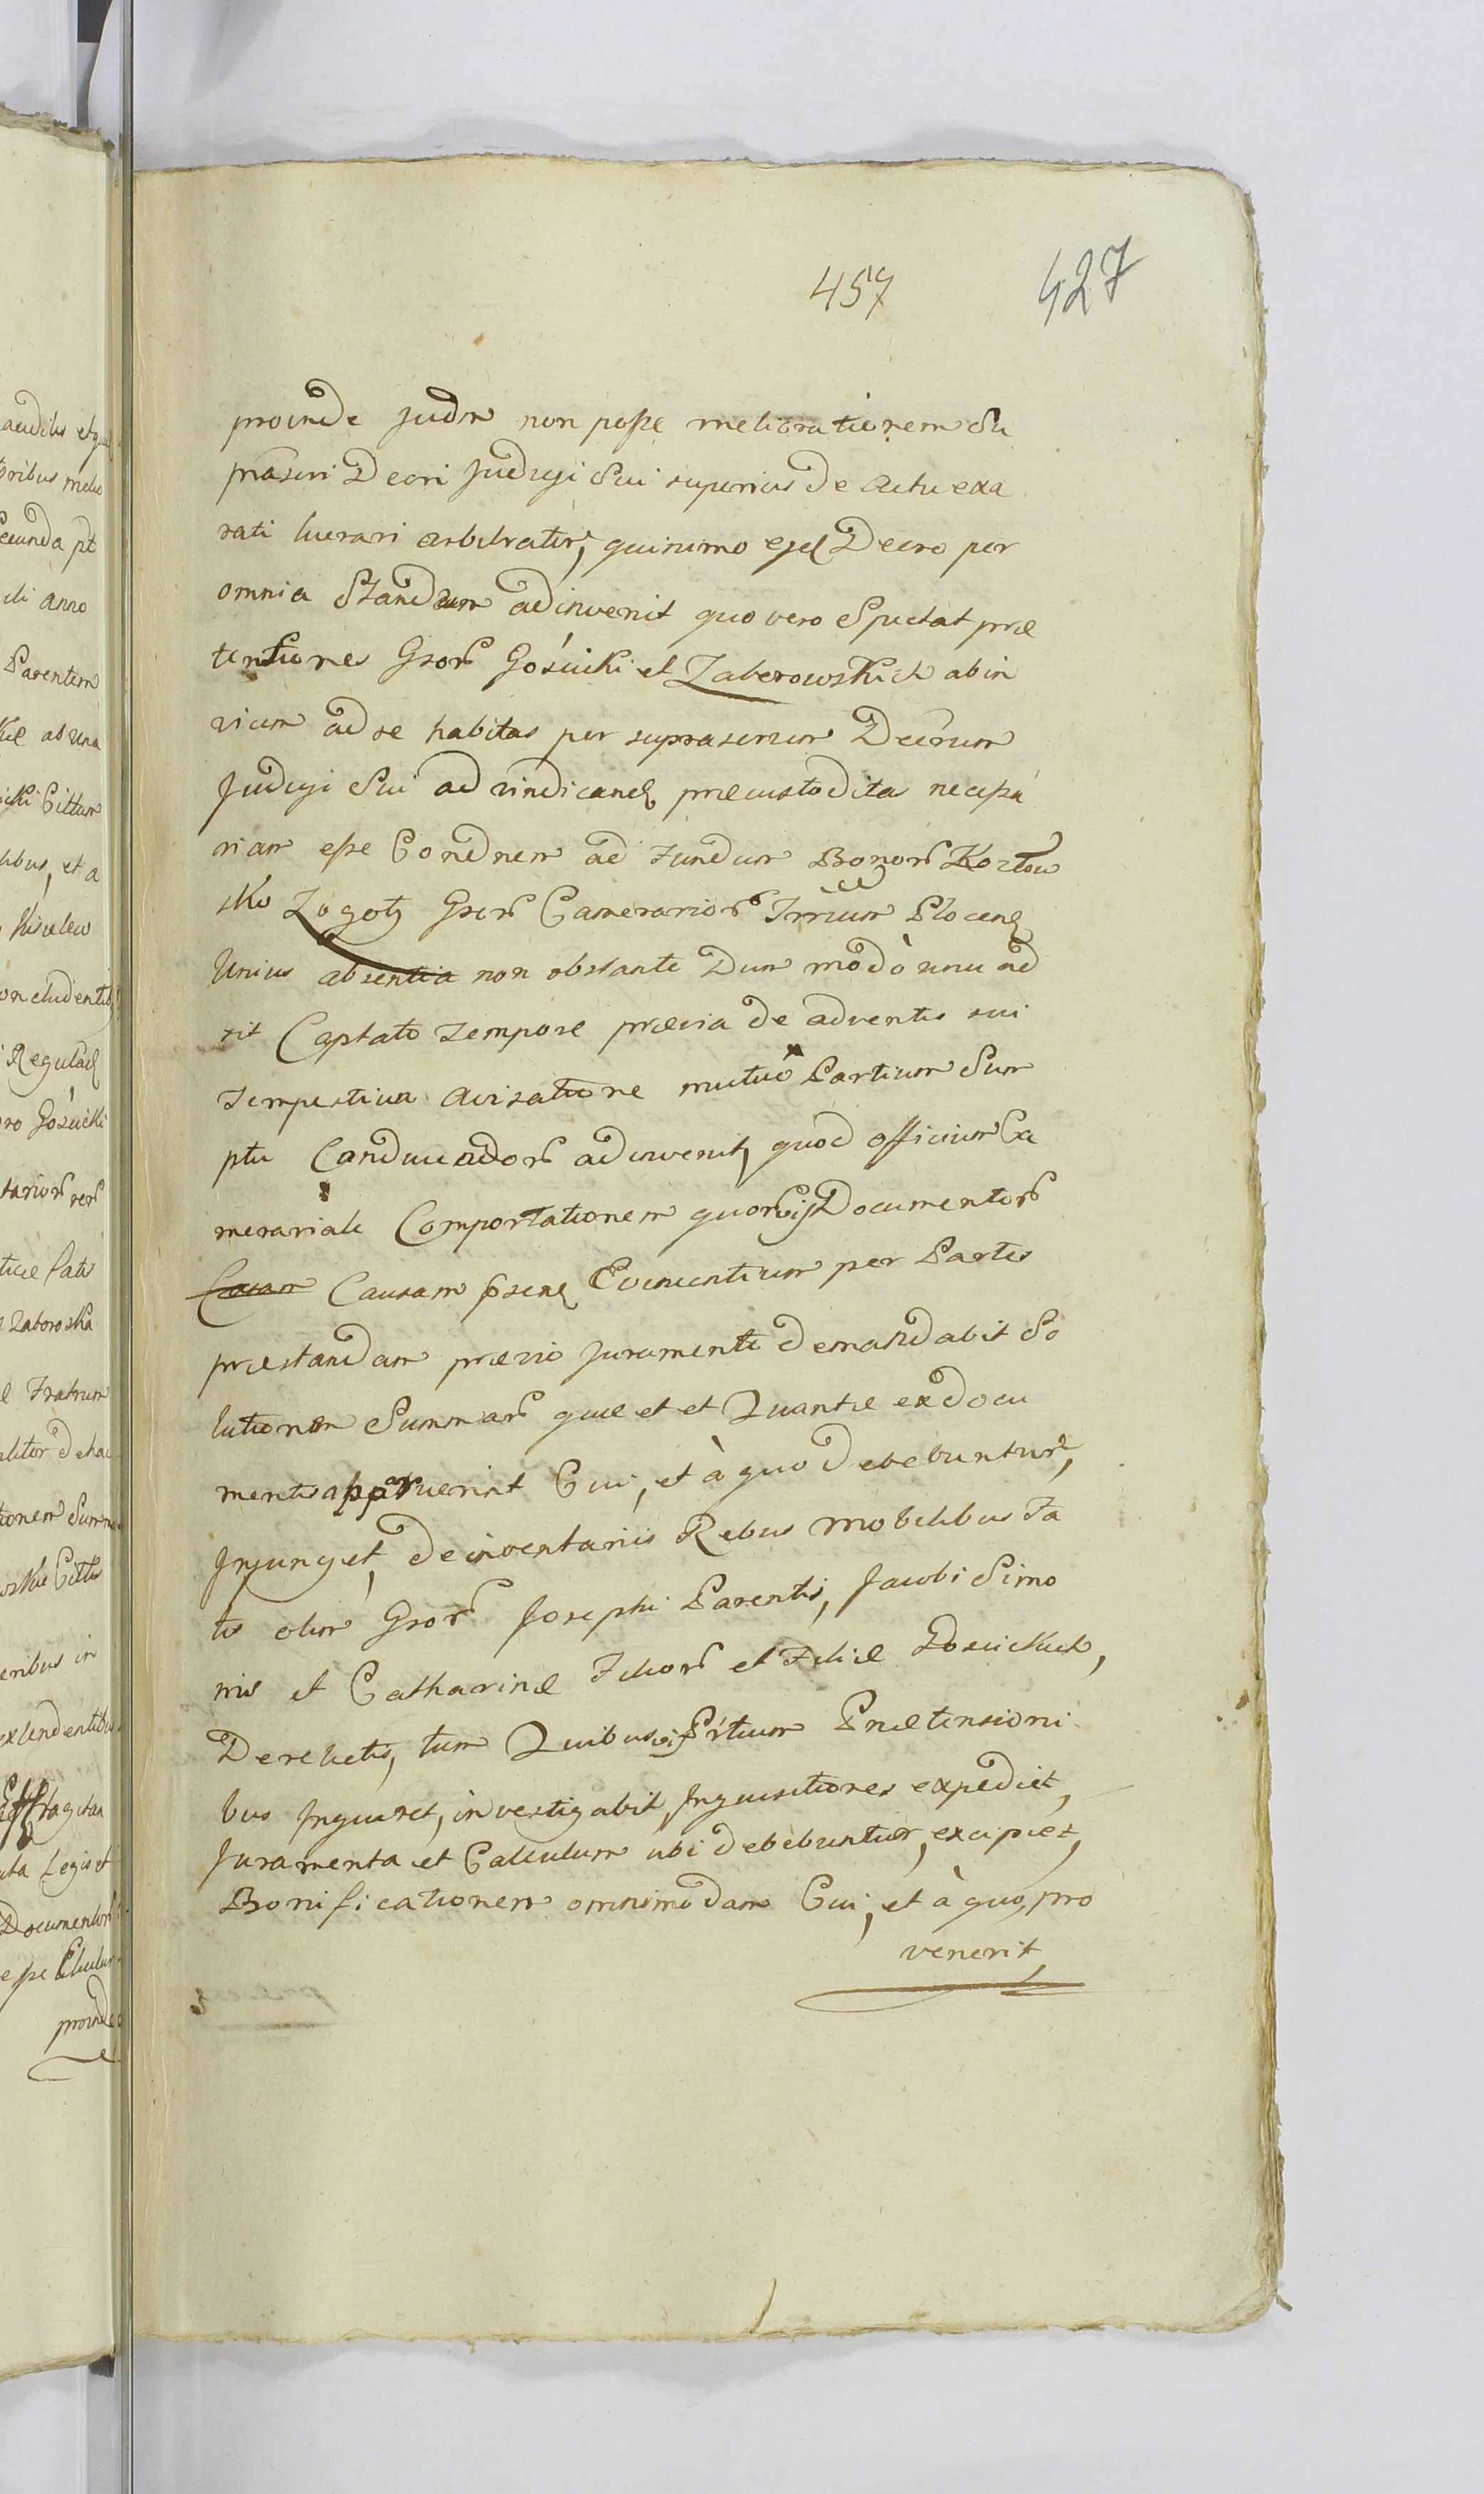 457 427
proinde Judm non posse meliorationem Su
prascri Decri Judicji Sui superius de Actu exa
rati lucrari arbitratur, quinimo ejd Decro per
omnia Standum adinvenit quo vero Spectat præ
tensiones Gsor Gościcki et Zaborowskich abin
vicem ad se habitas per suprascrium Decrum
Judicji Sui ad vindicand præcustodita necessa
riam esse Condnem ad Fundum Bonor Kozłow
sko Zogoty Gsor Camerarior Trrium Plocens
Unius absentia non obstante Dum modò unu ad
sit Captato Tempore prævia de adventu sui
Tempestiva Avisatione mutuo Partium Sum
ptu Conducendor adinvenit, quod officium Ca
merariale Comportationem quorvis Documentor
Causam psend Evincentium per Partes
præstandam prævio Juramento demandabit So
lutionem Summar quæ et et Quantæ ex docu
mentis apparuerint Cui, et à quo debebuntur,
Injunget, de inventariis Rebus mobilibus Fa
tis olim Gsor Josephi Parentis, Jacobi Simo
nis et Catharinæ Filior et Filiæ Gościckich,
Derelictis, tum Quibusvis Prtium Prætensioni
bus Inquiret, investigabit, Inquisitiones expediet,
Juramenta et Calculum ubi debebuntur, excipiet,
Bonificationem omnimodam Cui, et à quo, pro
venerit,